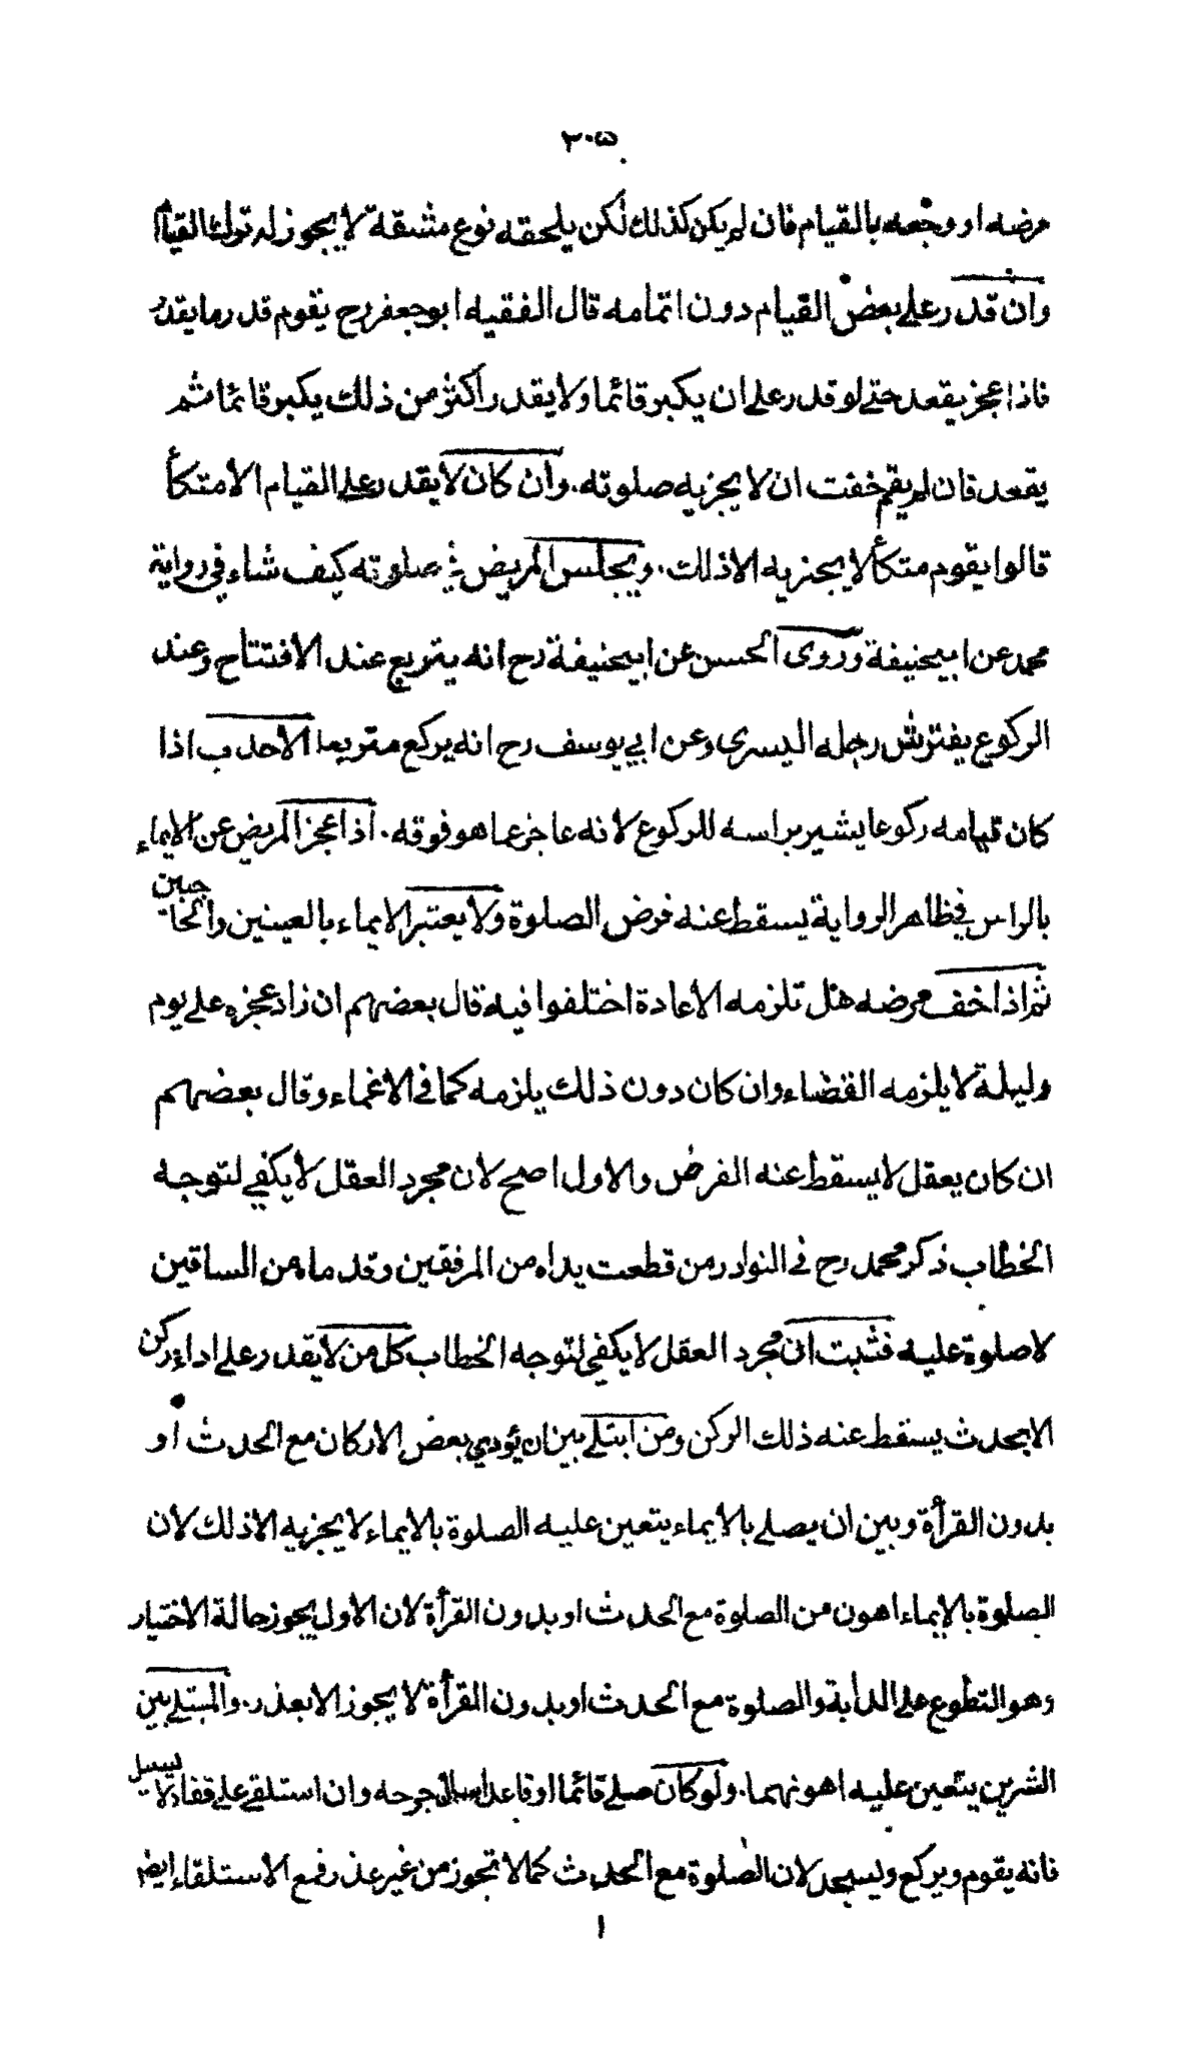 ٣٠٥
مرضه او وجعه بالقيام فان لم يكن كذلك لكن يلحقه نوع مشقة لا يجوز له ترك القيام
وان قدر على بعض القيام دون اتمامه قال الفقيه ابوجعفر رح يقوم قدر ما يقدر
فاذا عجز يقعد حتى لو قدر على ان يكبر قائما ولا يقدر أكثر من ذلك يكبر قائما ثم
يقعد فان لم يقم خفت ان لا يجزيه صلوته. وان كان لا يقدر على القيام الا متكأ
قالوا يقوم متكأ لا يجزيه الا ذلك. ويجلس المريض في صلوته كيف شاء في رواية
محمد عن ابيحنيفة وروى الحسن عن ابيحنيفة رح انه يتربع عند الافتتاح وعند
الركوع يفترش رجله اليسرى وعن ابي يوسف رح انه يركع متربعا الاحدب اذا
كان قيامه ركوعا يشير براسه للركوع لانه عاجز عما هو فوقه. اذا عجز المريض عن الايماء
بالراس في ظاهر الرواية يسقط عنه فرض الصلوة ولا يعتبر الايماء بالعينين والحاجبين
ثم اذا خف مرضه هل تلزمه الاعادة اختلفوا فيه قال بعضهم ان زاد عجزه على يوم
وليلة لا يلزمه القضاء وان كان دون ذلك يلزمه كما في الاغماء وقال بعضهم
ان كان يعقل لا يسقط عنه الفرض والاول اصح لان مجرد العقل لا يكفي لتوجه
الخطاب ذكر محمد رح في النوادر من قطعت يداه من المرفقين وقدماه من الساقين
لا صلوة عليه فثبت ان مجرد العقل لا يكفي لتوجه الخطاب كل من لا يقدر على اداء ركن
الا بحدث يسقط عنه ذلك الركن ومن ابتلى بين ان يؤدي بعض الاركان مع الحدث او
بدون القرأة وبين ان يصلى بالايماء يتعين عليه الصلوة بالايماء لا يجزيه الا ذلك لان
الصلوة بالايماء اهون من الصلوة مع الحدث او بدون القرأة لان الاول يجوز حالة الاختيار
وهو التطوع على الدابة والصلوة مع الحدث او بدون القرأة لا يجوز الا بعذر. والمبتلى بين
الشرين يتعين عليه اهونهما. ولو كان صلى قائما او قاعدا سال جرحه وان استلقى على قفاه لا يسيل
فانه يقوم ويركع ويسجد لان الصلوة مع الحدث كما لا تجوز من غير عذر فمع الاستلقاء ايضا
١